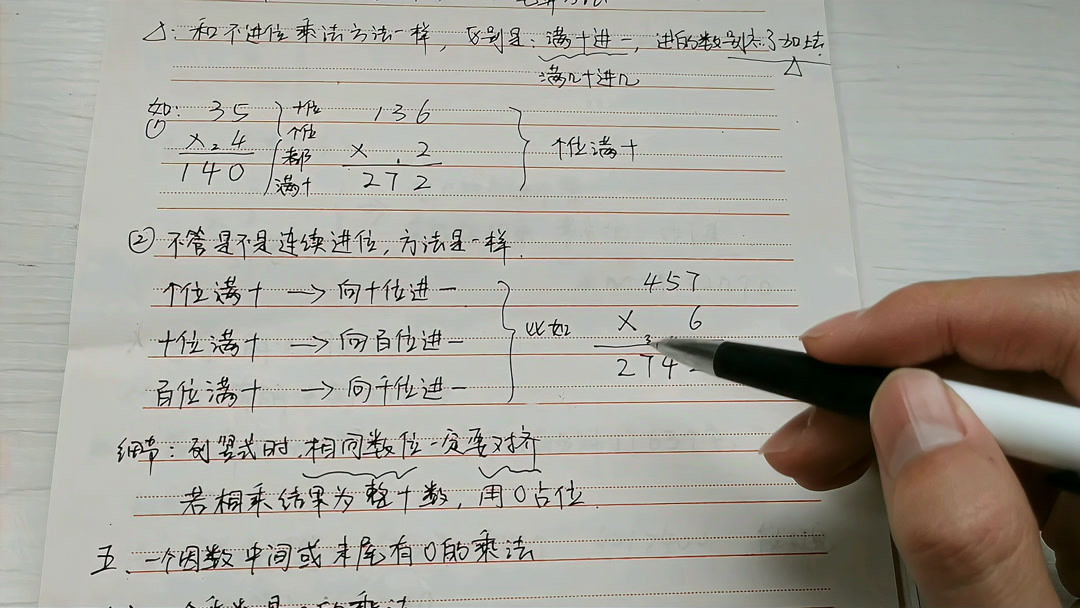 △：和不进位乘法方法一样，区别是：满十进一，进的数别忘了加上去
满几十进几 △
如： 35 十位 136
① ×₂4 个位 × . 2 个位满十
140 都满十 272
② 不管是不是连续进位，方法是一样.
个位满十 → 向十位进一 457
十位满十 → 向百位进一 比如 × 6
百位满十 → 向千位进一 274
细节：列竖式时，相同数位一定要对齐
若相乘结果为整十数，用0占位.
五、一个因数中间或末尾有0的乘法